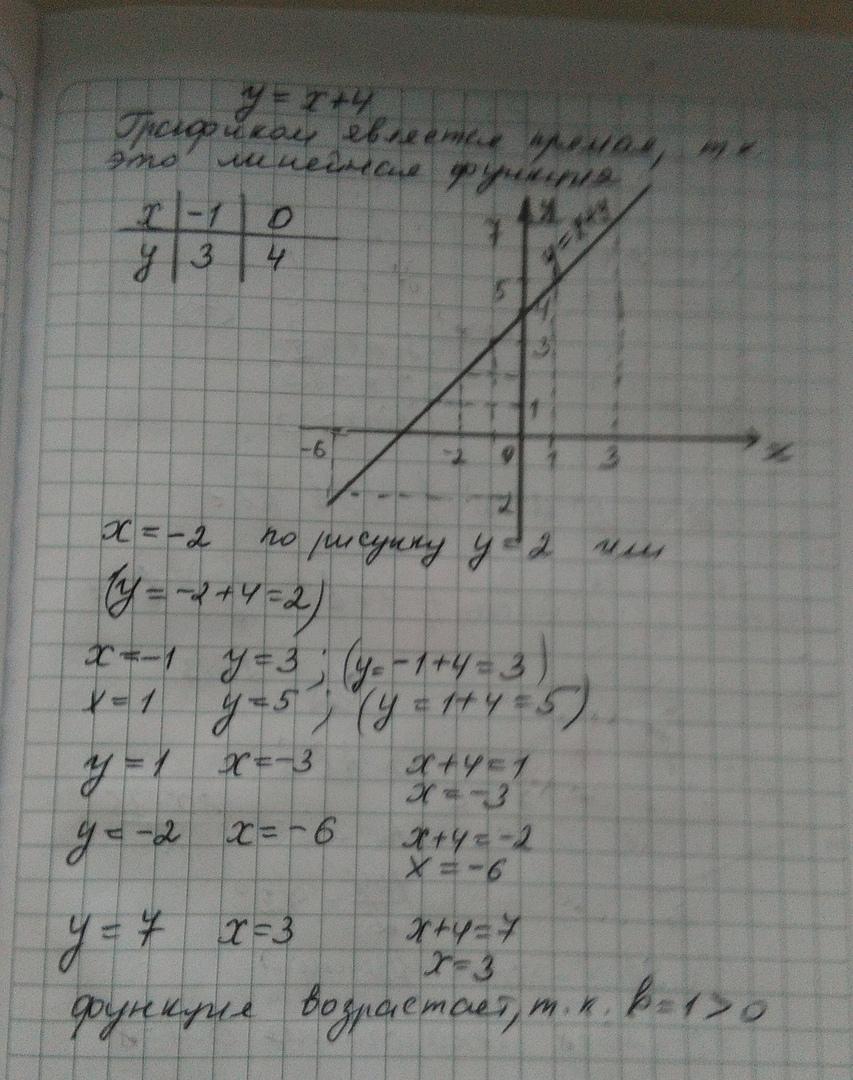 y = x+4
Графиком является прямая, т.к.
это линейная функция
x -1 0
y 3 4
y
7
y=x+4
5
4
3
1
-6 -2 0 1 3 x
2
x = -2 по рисунку y = 2 или
(y = -2+4 = 2)
x = -1 y = 3 ; (y = -1+4 = 3)
x = 1 y = 5 ; (y = 1+4 = 5)
y = 1 x = -3 x+4 = 1
x = -3
y = -2 x = -6 x+4 = -2
x = -6
y = 7 x = 3 x+4 = 7
x = 3
функция возрастает, т.к. k = 1 > 0